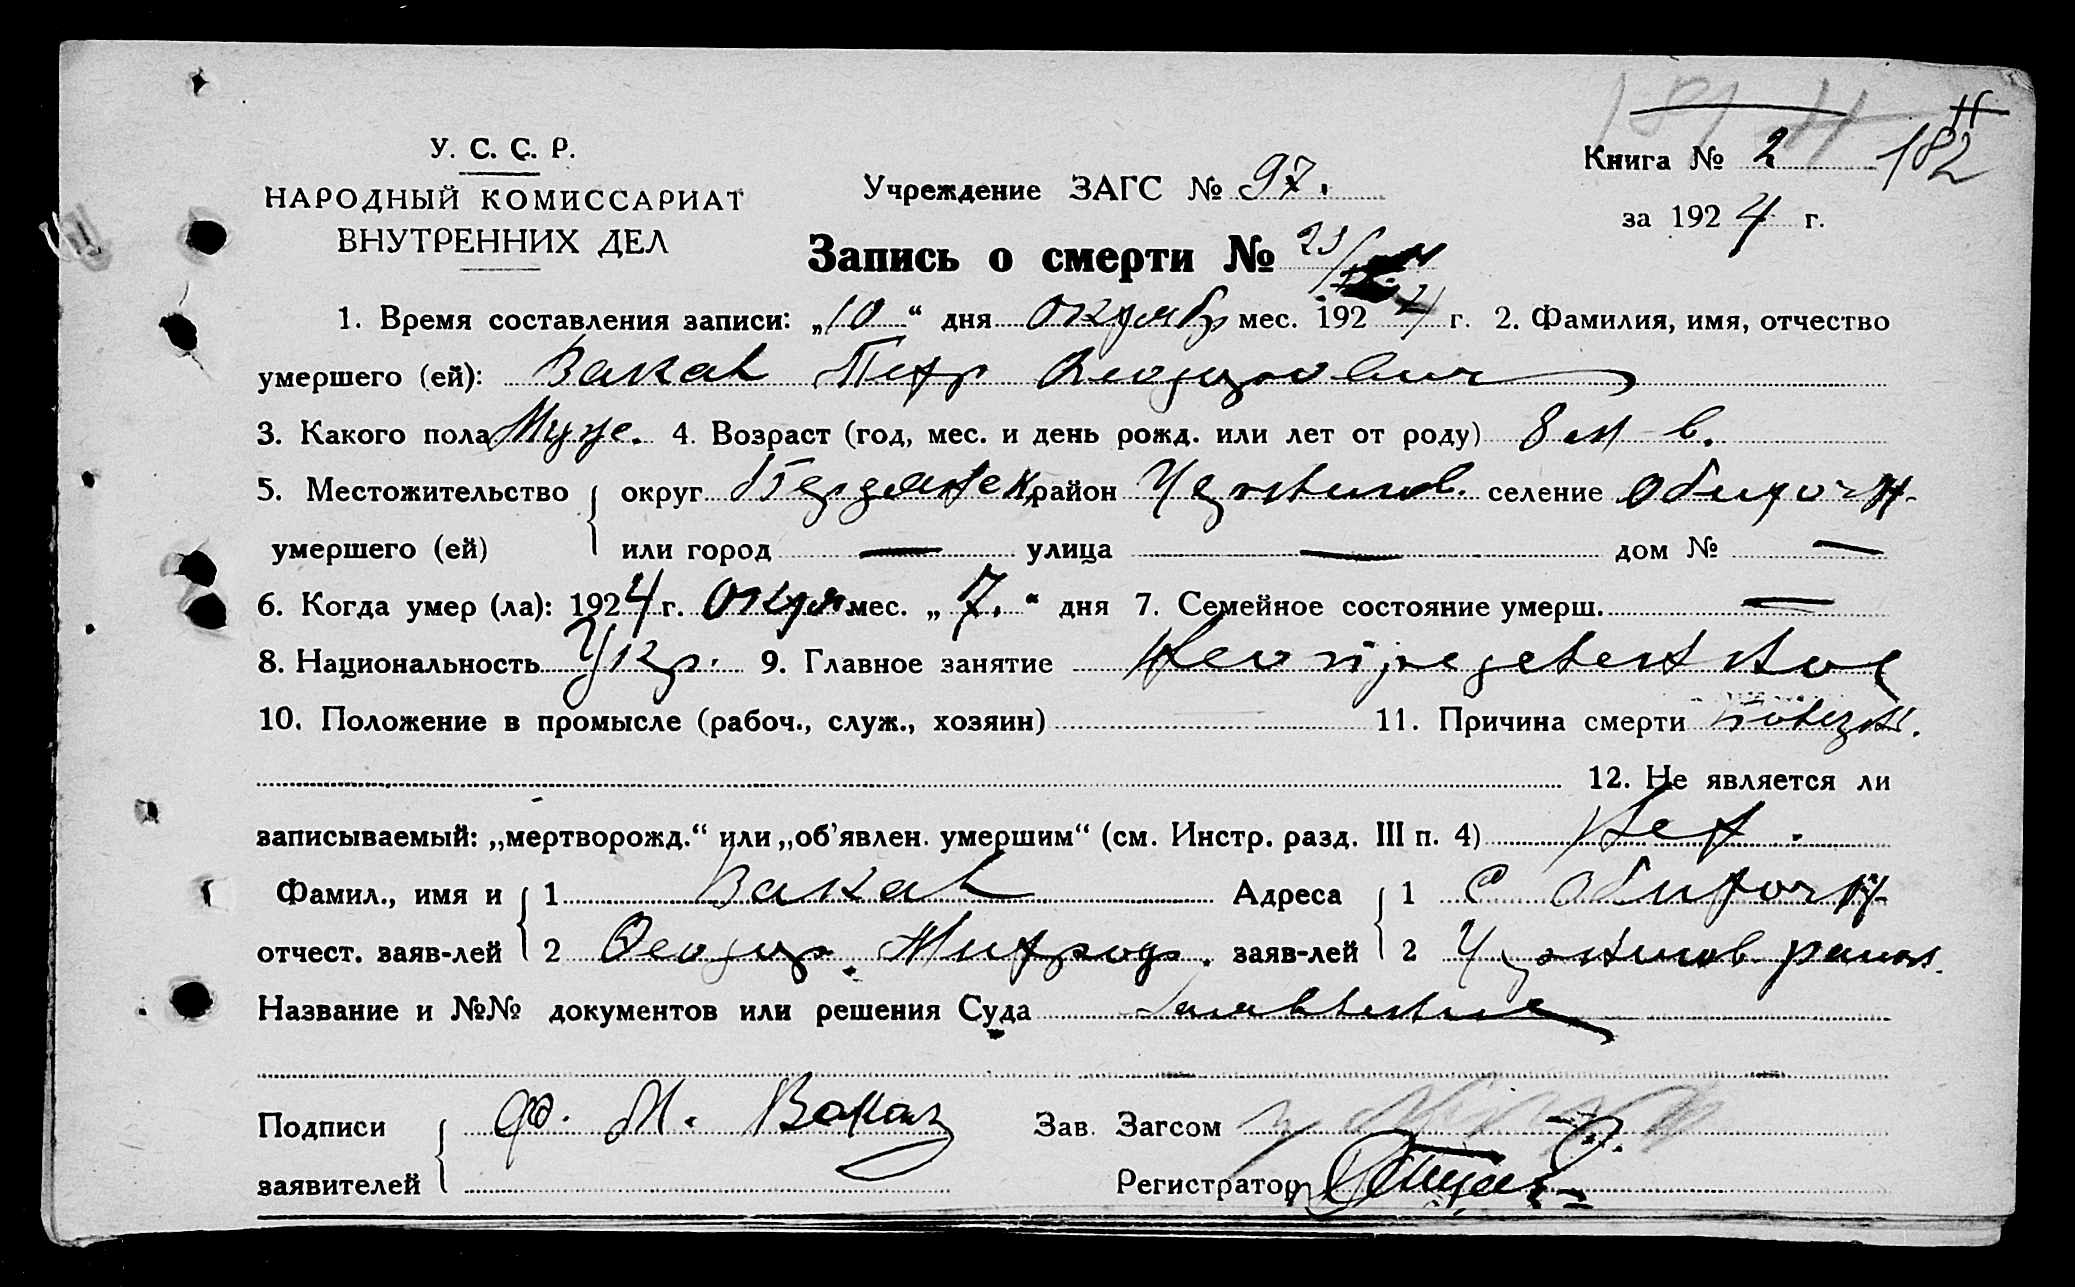 182
У. С. С. Р.
НАРОДНЫЙ КОМИССАРИАТ
ВНУТРЕННИХ ДЕЛ
Учреждение ЗАГС № 97.
Книга № 2
за 1924 г.
Запись о смерти №
1. Время составления записи: „10“ дня октябр мес. 1924 г. 2. Фамилия, имя, отчество
умершего (ей): Вакал Петр Феодорович
3. Какого пола Муж. 4. Возраст (год, мес. и день рожд. или лет от роду) 8 м-в.
5. Местожительство округ Бердянск район Черниговс. селение Обиточн.
умершего (ей) или город — улица — дом № —
6. Когда умер (ла): 1924 г. Октя мес. „7.“ дня 7. Семейное состояние умерш. —
8. Национальность Укр. 9. Главное занятие
10. Положение в промысле (рабоч., служ., хозяин) 11. Причина смерти
12. Не является ли
записываемый: „мертворожд.“ или „об’явлен. умершим“ (см. Инстр. разд. III п. 4) Нет.
Фамил., имя и 1 Вакал Адреса 1 С Обиточн
отчест. заяв-лей 2 Феодор. Митрод. заяв-лей 2 Черниговс. район.
Название и №№ документов или решения Суда
Подписи Ф. М. Вакал Зав. Загсом
заявителей Регистратор